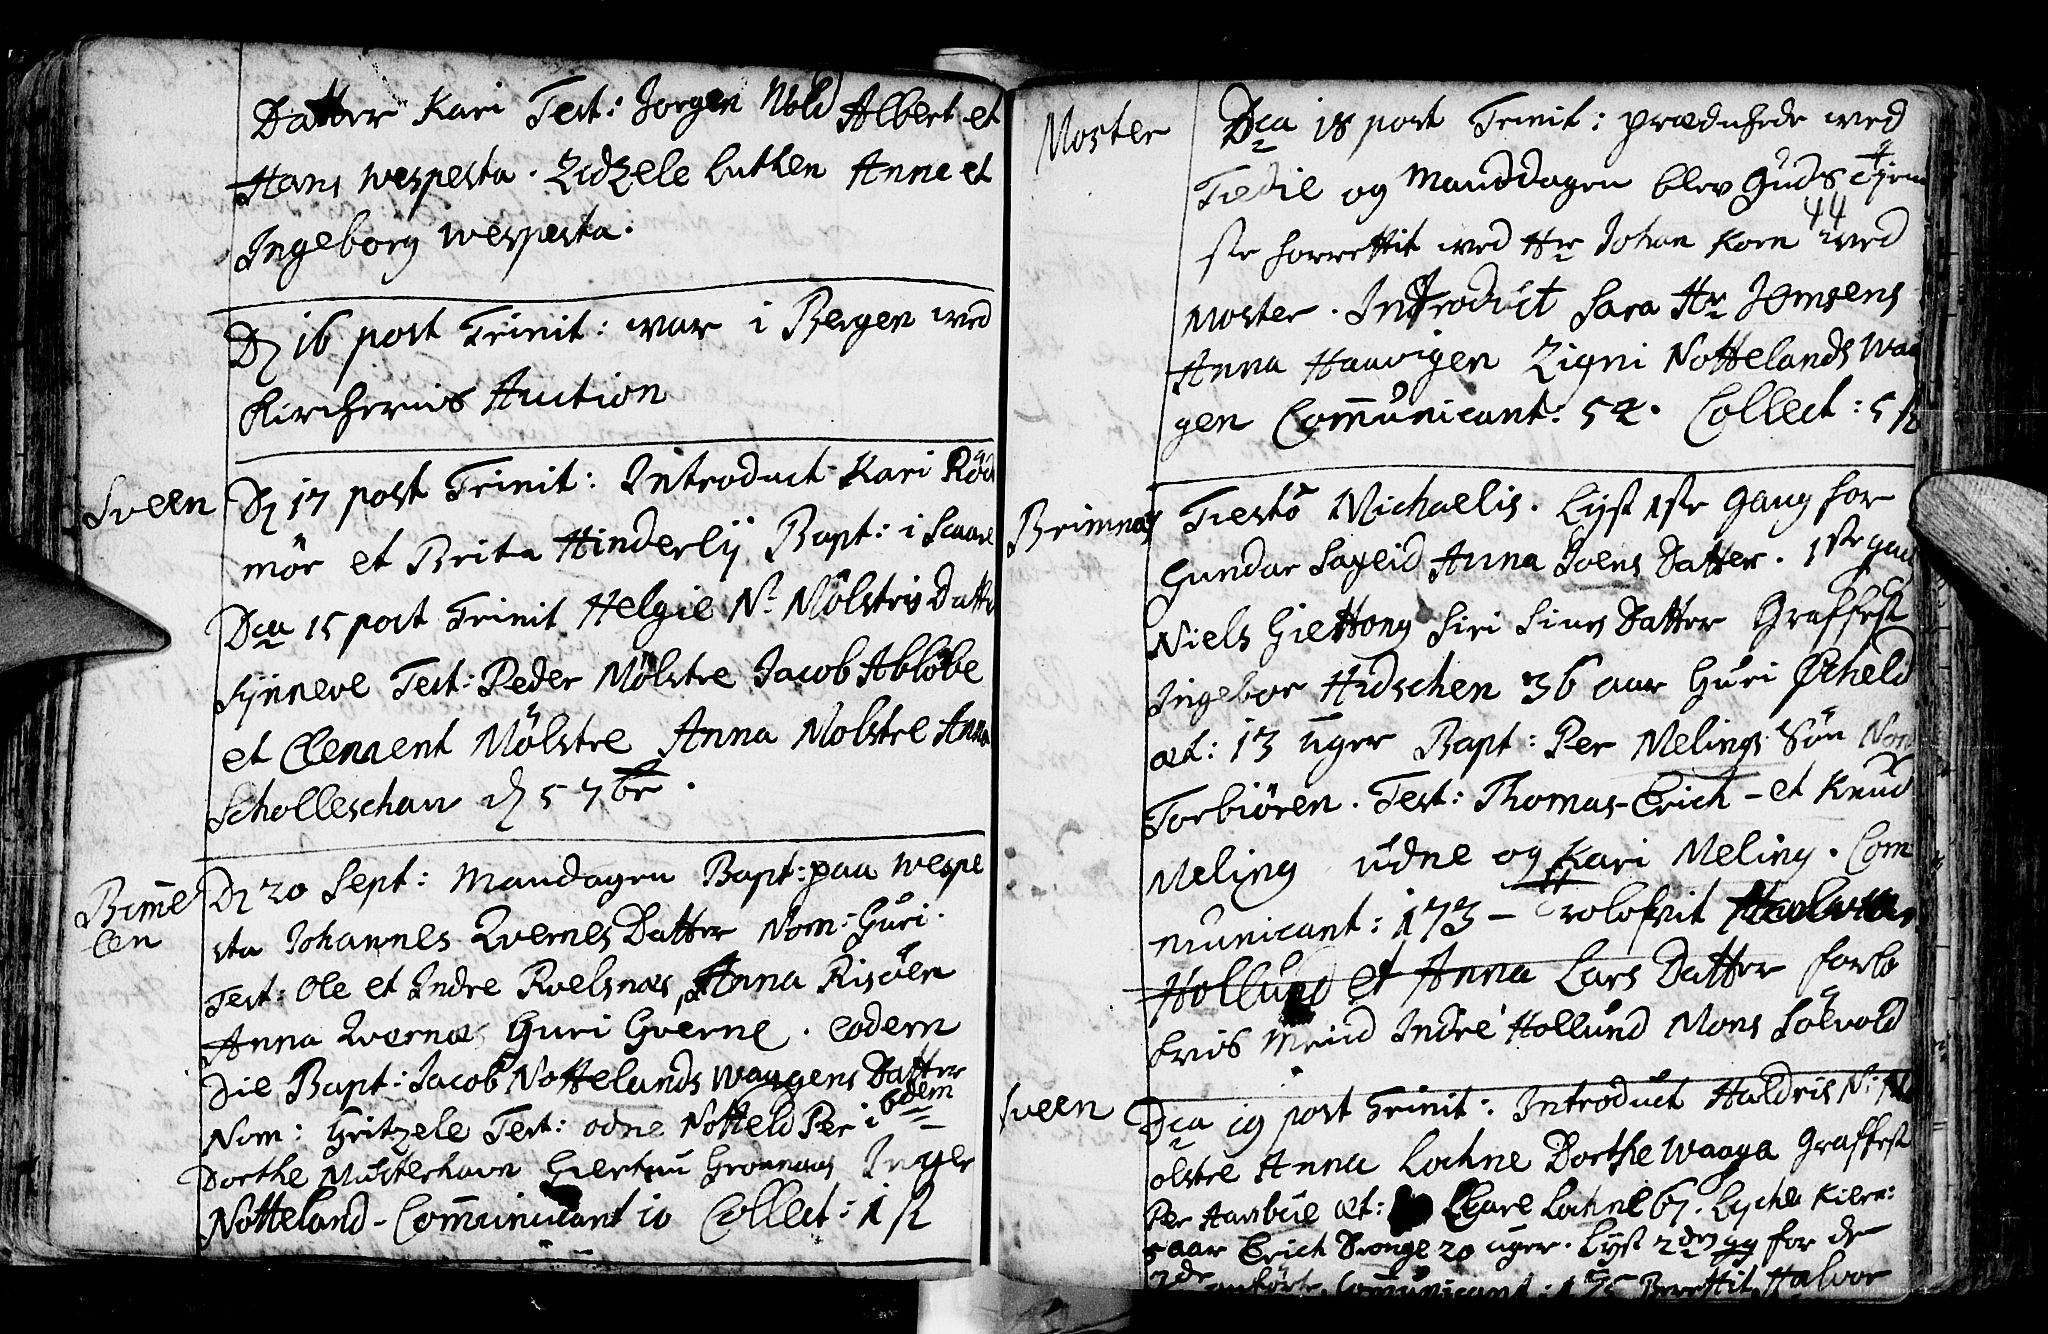 Datter Kari Test: Jorgen Wold Albert et
Hans Wespesta. Zidzele Luthen Anne et
Ingeborg Wespesta.
D 16 post Trinit: war i Bergen wed
Kirchernis Auction
Sveen
D 17 post Trinit: Introduct Kari Röd
mör et Brita Hinderlij Bapt: i
Dca 15 post Trinit Helgie N. Mölstris Datter
Synneve Test: Peder Mölstre Jacob Abløbe
et Clement Mölstre Anna Molstre Anna
Scholleschau d 5 7br.
Bimme
len
D 20 Sept: Mandagen Bapt: paa Wespe
sta Johannes Qvernes Datter Nom: Guri.
Test: Ole et Indre Roelsnæs, Anna Risöen
Anna Qvernæs Guri Gverne. eodem
Die Bapt: Jacob Nottelands Waagens Datter
Nom: Gritzele Test: odne Notteld Per ibdem
Dorthe Mosterhavn Giertru Gronnaas Inger
Notteland - Communicant 10 Collect: 1 ß
Moster
Dca 18 post Trinit: prædichede wed
Tiedie og Manddagen blev Guds Tjene
44
ste forrettit wed Hr Johan Korn wed
Moster. Introduct Sara Hr Jemsens
Anna Haavigen Zigni Nottelands Waa
gen Communicant: 52. Collect: 5 ß
Brimnæs
Festo Michaelis. Lyst 1ste Gang for
Gundar Sageid Anna Joens Datter. 1ste gang
Niels Giettong Siri Sines Datter Graffest
Ingebor Hidschen 36 aar Guri Økeld
æt: 13 uger Bapt: Per Melings Sön Nom
Torbiören. Test: Thomas - Erich - et Knud
Meling udne og Kari Meling. Com
municant: 173 - Trolofvit
Hollund et Anna Lars Datter forlo
friis Meind Indre Hollund Mons Solvold
Sveen
Dca 19 post Trinit: Introduct Haldris N: M
olstre Anna Lochne Dorthe Waaga Graffest
Per Haisbue æt: Lochne 67. Lyche Kiern:
5 aar Erich Dronge 20 uger. Lyst 2den gg for de
Communicant: 175 Berettit Halvor